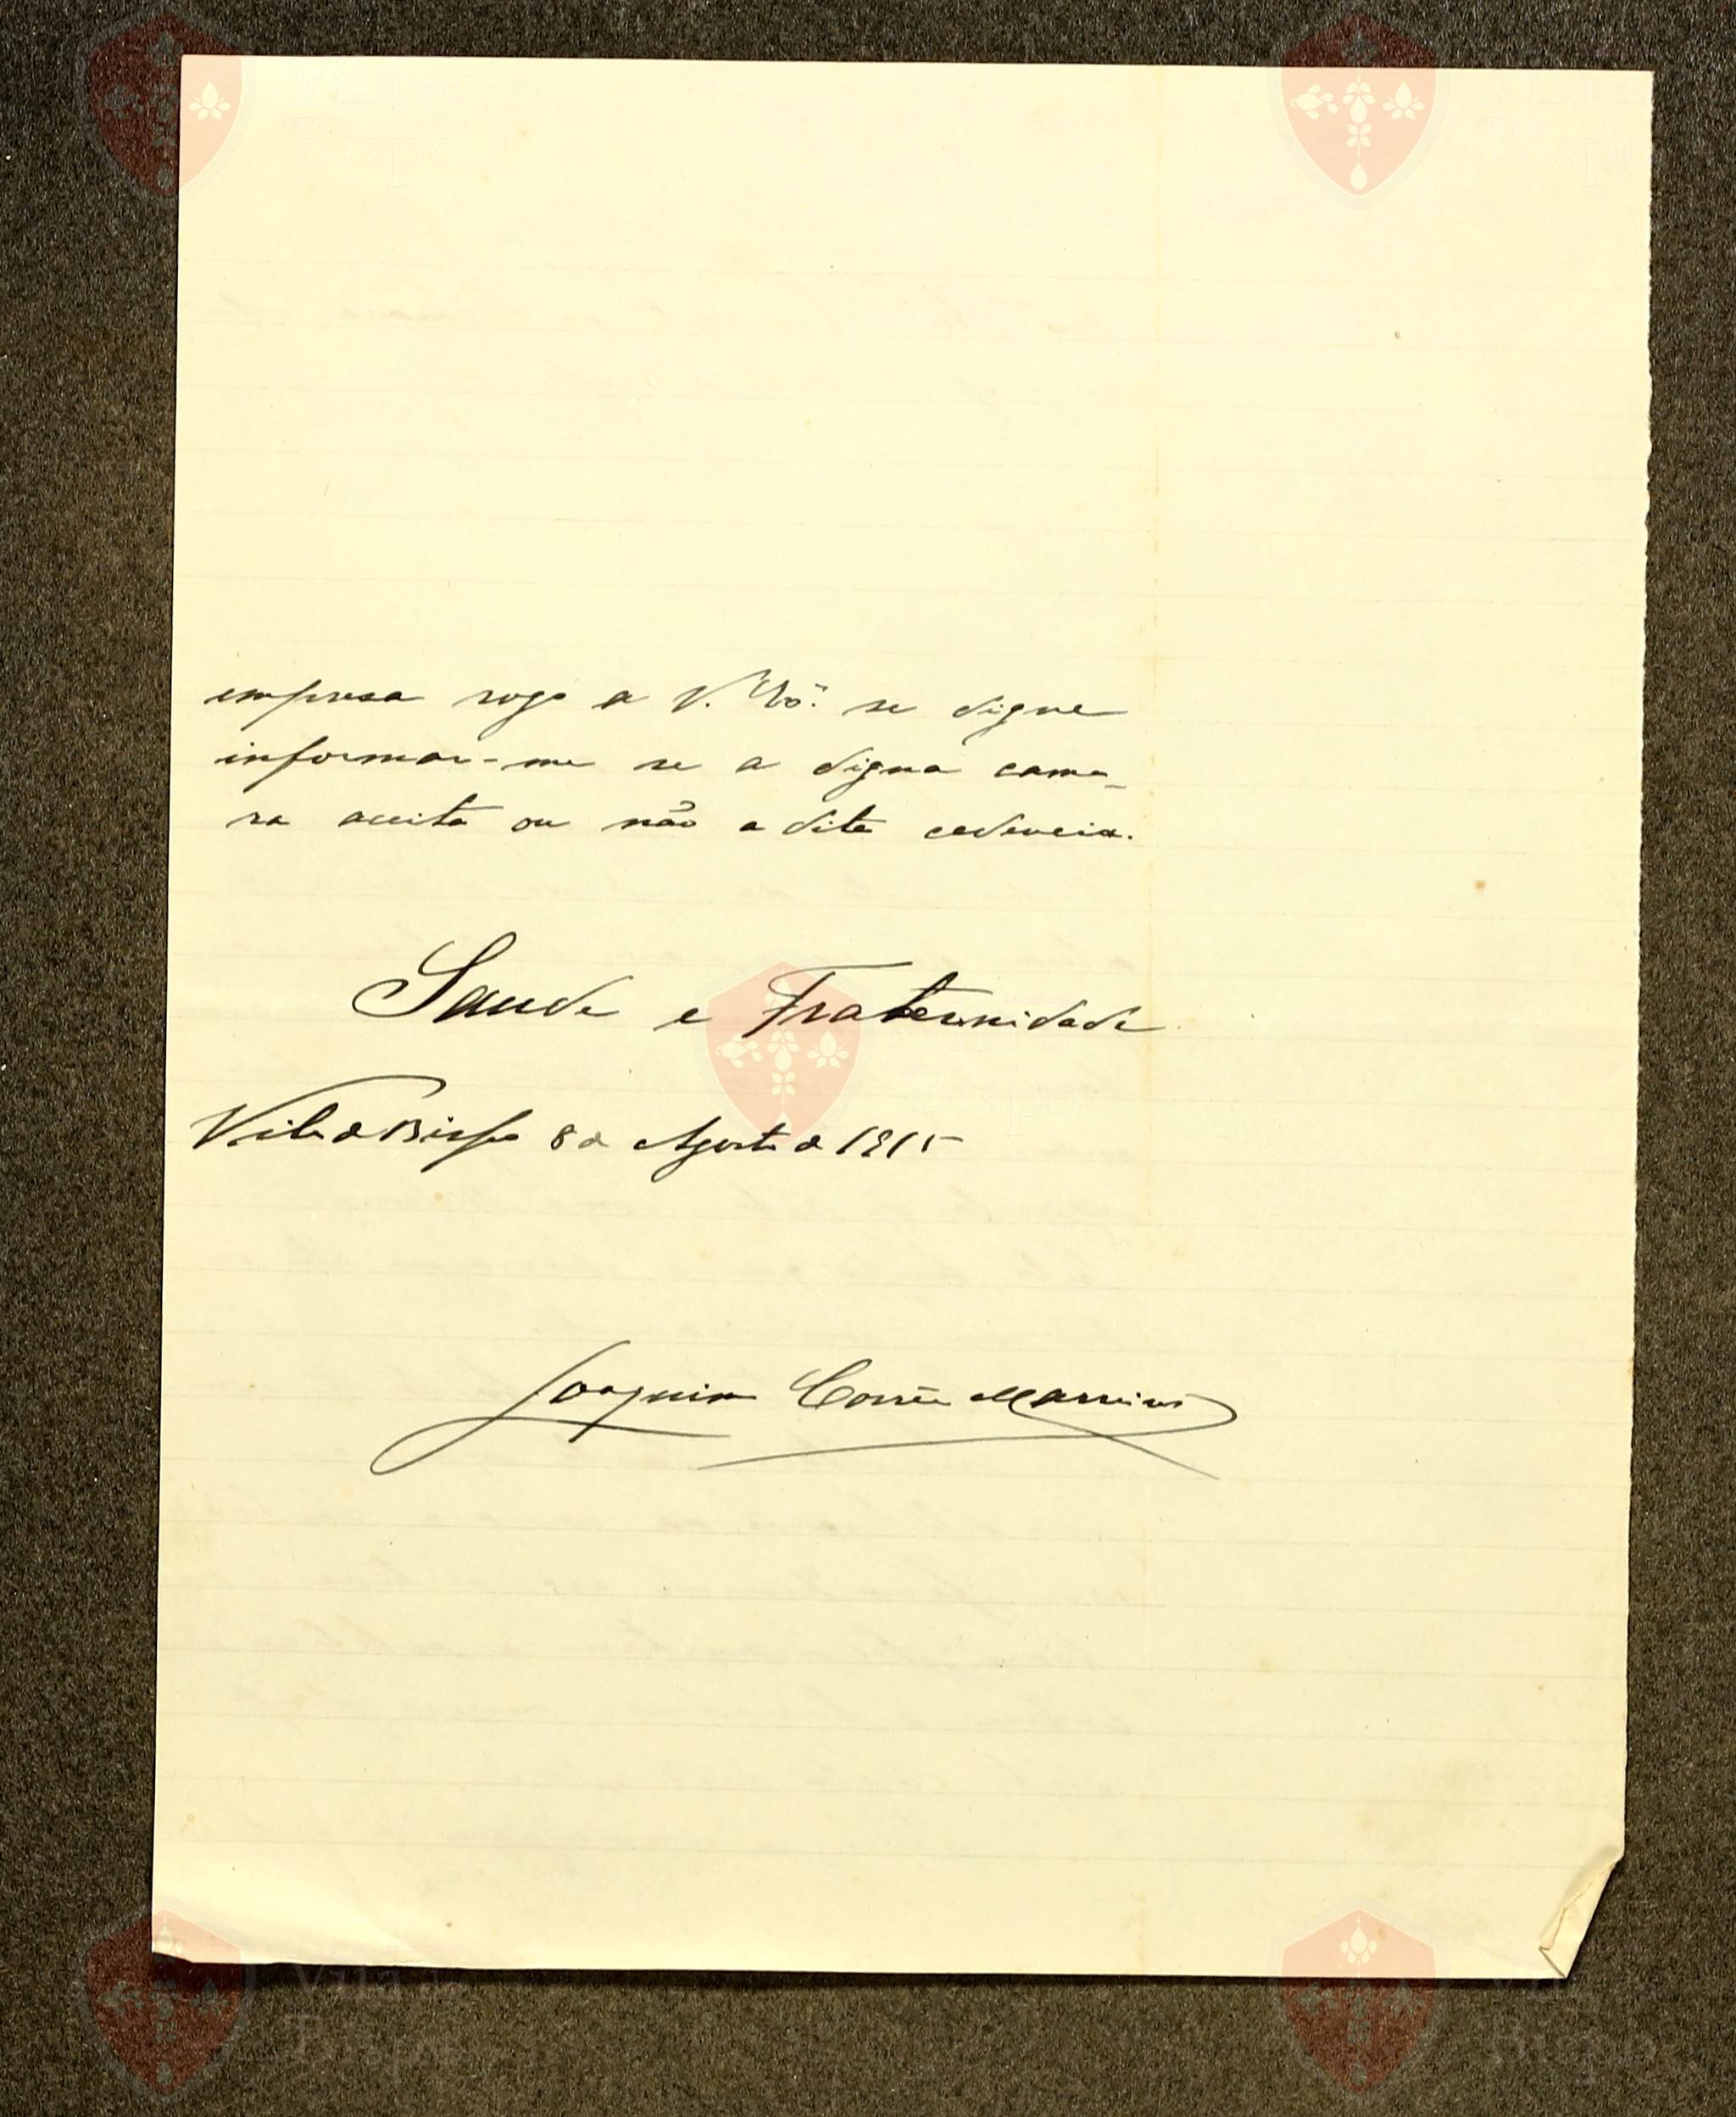 empresa rogo a V. Exª. se digne
informar-me se a digna cama-
ra aceita ou não a dita cedencia.
Saude e Fraternidade
Vila do Bispo 8 de Agosto de 1915
Joaquim Corrêa
Vila do
Bispo